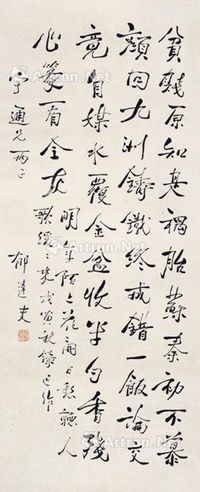 貧賤原知是禍胎蘇秦初不慕
顏回九洲鑄鐵終成錯一飯論交
竟自媒水覆金盆收半勺香殘
心篆看全灰明年陌上花開日愁聽人
歌緩緩來戊寅秋錄近作
通兄兩正
郁達夫
Artron.Net